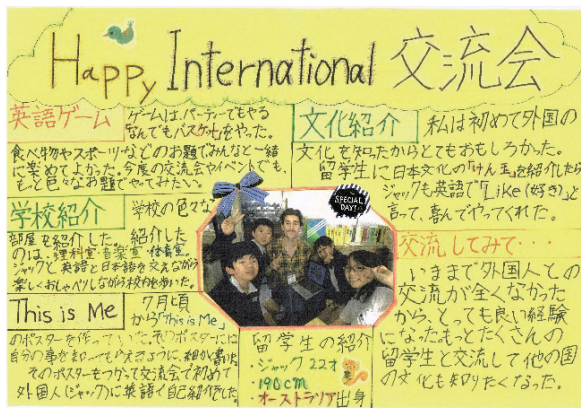 Happy International 交流会
英語ゲーム
ゲームは、パーティーでもやる
なんでもバスケットをやった。
食べ物やスポーツなどのお題でみんなと一緒
に楽めてよかった。今度の交流会やイベントでも、
もっと色々なお題でやってみたい。
学校紹介
学校の色々な
部屋を紹介した。紹介した
のは、理科室・音楽室・体育館。
ジャックと英語と日本語を交えながら
楽しくおしゃべりしながら校内を歩いた。
This is Me
7月頃
から「This is Me」
のポスターを作っていた。そのポスターには
自分の事を知ってもらえるように、細かく書いた
そのポスターをつかって交流会で初めて
外国人(ジャック)に英語で自己紹介をした。
SPECIAL
DAY!
留学生の紹介
・ジャック 22才
・190cm
・オーストラリア出身
文化紹介
私は初めて外国の
文化を知ったからとてもおもしろかった。
留学生に日本文化の「けん玉」を紹介したら
ジャックも英語で「Like(好き)」と
言って、喜んでやってくれた。
交流してみて・・・
いままで外国人との
交流が全くなかった
から、とっても良い経験
になった。もっとたくさんの
留学生と交流して他の国
の文化も知りたくなった。